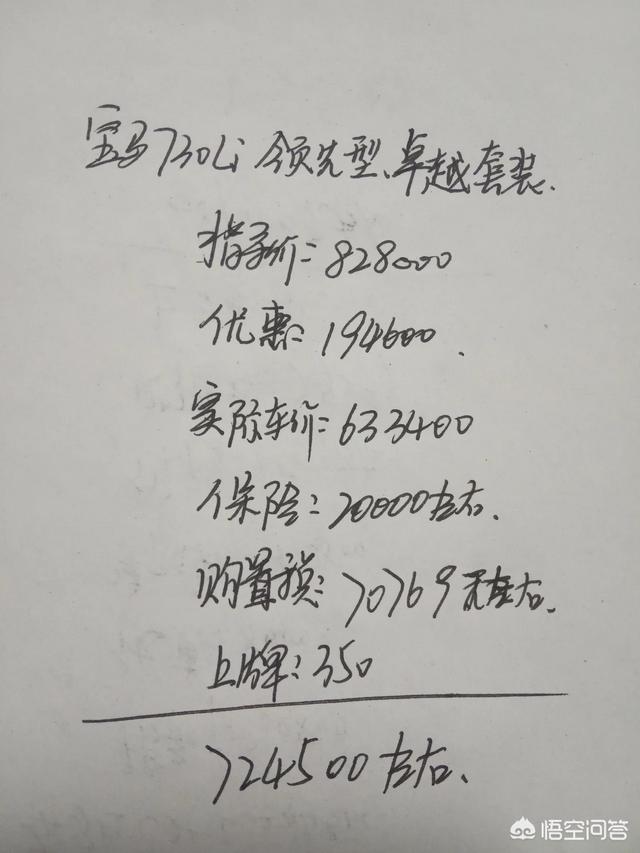 宝马730Li 领先型、卓越套装.
指导价: 828000
优惠: 194600.
实际车价: 633400
保险: 20000左右.
购置税: 70769元左右.
上牌: 350
724500左右.
悟空问答